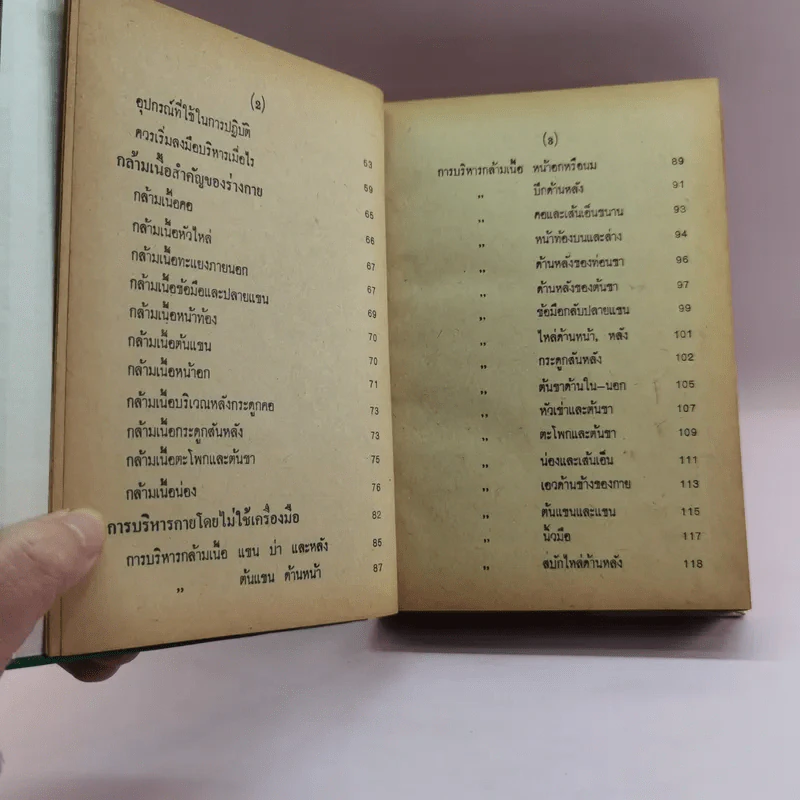 (2)
อุปกรณ์ที่ใช้ในการปฏิบัติ 63
ควรเริ่มลงมือบริหารเมื่อไร 69
กล้ามเนื้อสำคัญของร่างกาย 65
กล้ามเนื้อคอ 66
กล้ามเนื้อหัวไหล่ 67
กล้ามเนื้อทะแยงภายนอก 67
กล้ามเนื้อข้อมือและปลายแขน 69
กล้ามเนื้อหน้าท้อง 70
กล้ามเนื้อต้นแขน 70
กล้ามเนื้อหน้าอก 71
กล้ามเนื้อบริเวณหลังกระดูกคอ 73
กล้ามเนื้อกระดูกสันหลัง 73
กล้ามเนื้อตะโพกและต้นขา 75
กล้ามเนื้อน่อง 76
การบริหารกายโดยไม่ใช้เครื่องมือ 82
การบริหารกล้ามเนื้อ แขน บ่า และหลัง 85
,, ต้นแขน ด้านหน้า 87
(3)
การบริหารกล้ามเนื้อ หน้าอกหรือนม 89
,, ปีกด้านหลัง 91
,, คอและเส้นเอ็นขนาน 93
,, หน้าท้องบนและล่าง 94
,, ด้านหลังของท่อนขา 96
,, ด้านหลังของต้นขา 97
,, ข้อมือกลับปลายแขน 99
,, ไหล่ด้านหน้า, หลัง 101
,, กระดูกสันหลัง 102
,, ต้นขาด้านใน–นอก 105
,, หัวเข่าและต้นขา 107
,, ตะโพกและต้นขา 109
,, น่องและเส้นเอ็น 111
,, เอวด้านข้างของกาย 113
,, ต้นแขนและแขน 115
,, นิ้วมือ 117
,, สบักไหล่ด้านหลัง 118